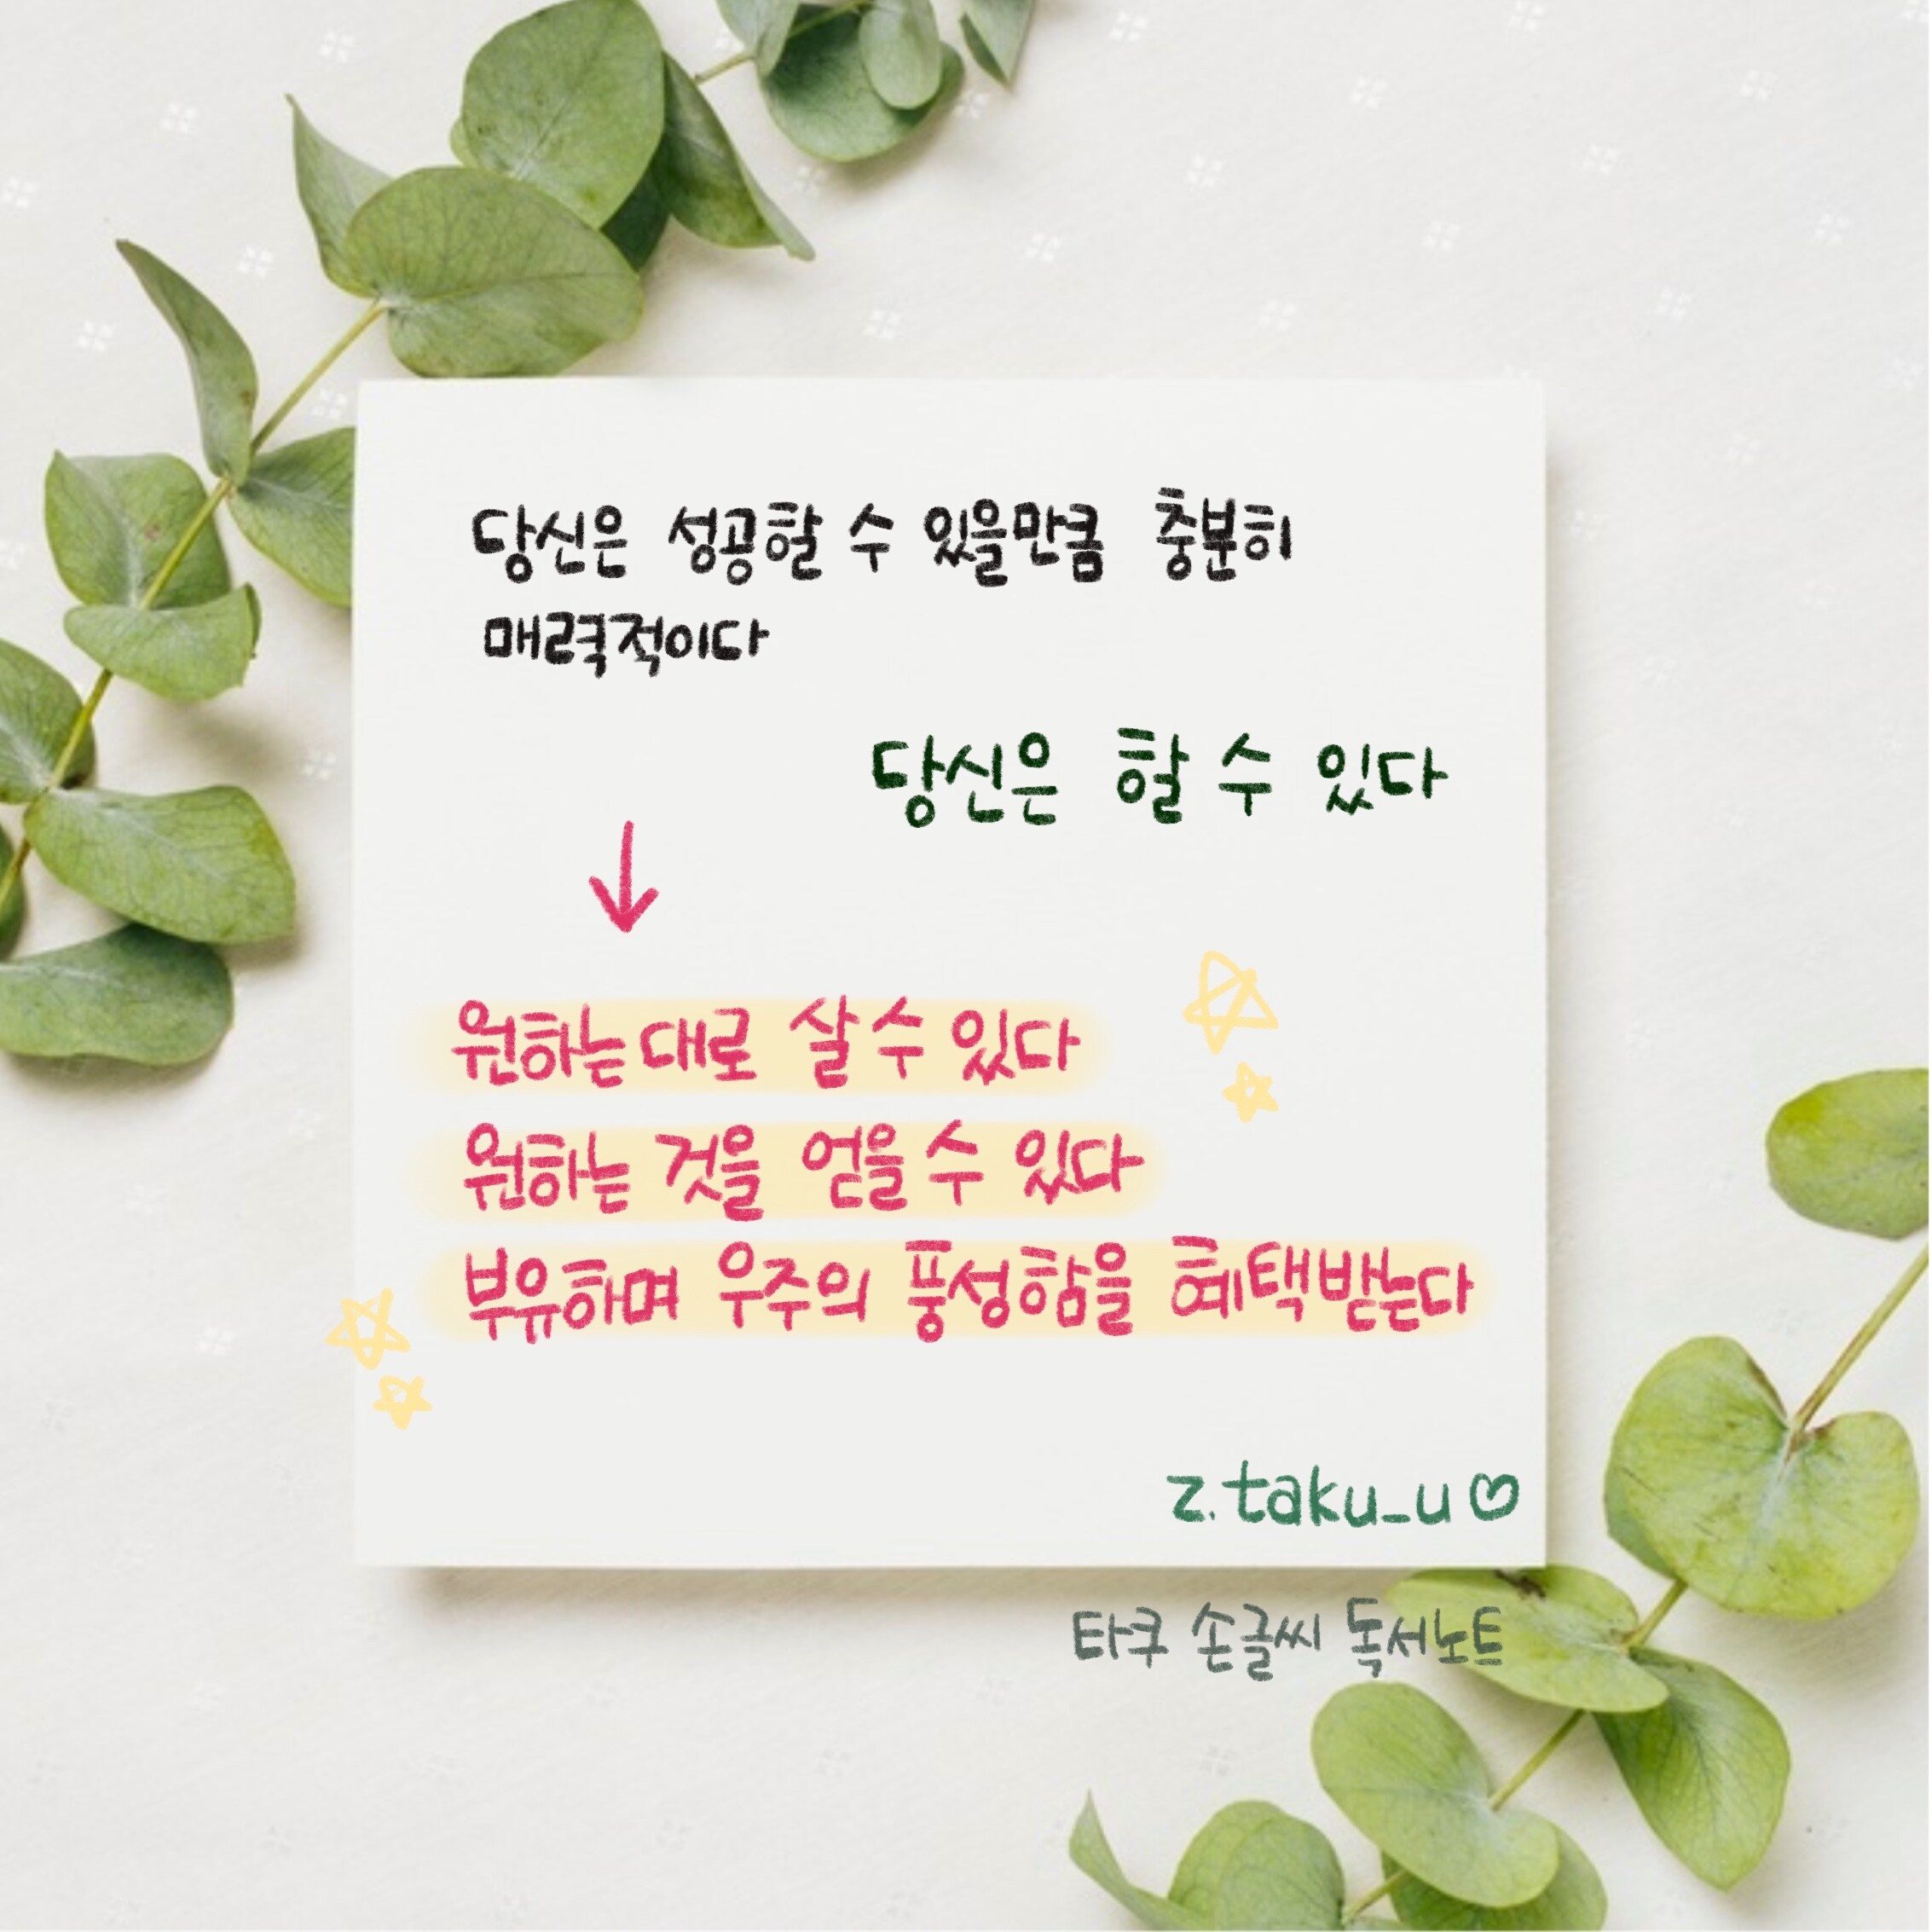 당신은 성공할 수 있을만큼 충분히
매력적이다
당신은 할 수 있다
원하는대로 살 수 있다
원하는 것을 얻을 수 있다
부유하며 우주의 풍성함을 혜택받는다
z.taku_u♡
타쿠 손글씨 독서노트